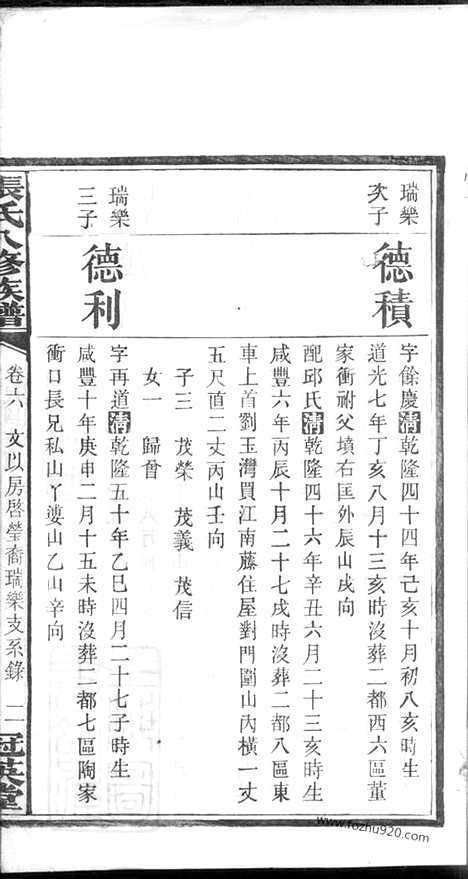 瑞樂
次子
德積
字餘慶清乾隆四十四年己亥十月初八亥時生
道光七年丁亥八月十三亥時沒葬二都西六區董
家衝祔父墳右匡外辰山戌向
配邱氏清乾隆四十六年辛丑六月二十三亥時生
咸豐六年丙辰十月二十七戌時沒葬二都八區東
車上首劉玉灣買江南藤住屋對門圍山內橫一丈
五尺直二丈丙山壬向
子三 茂榮 茂義 茂信
女一 歸曾
瑞樂
三子
德利
字再道清乾隆五十年乙巳四月二十七子時生
咸豐十年庚申二月十五未時沒葬二都七區陶家
衝口長兄私山丫婆山乙山辛向
張氏八修族譜
卷六 文以房啓瑩裔瑞樂支系錄 二
冠英堂
www.fozhu920.com